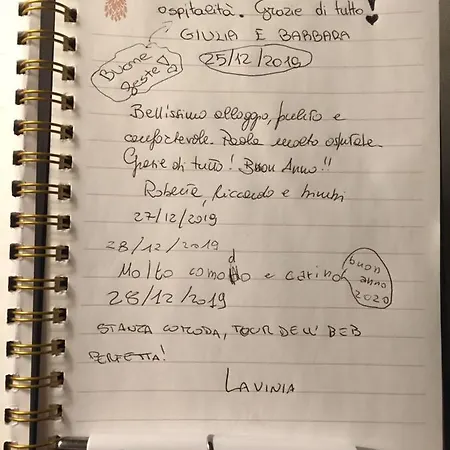 ospitalità. Grazie di tutto!
GIULIA E BARBARA
25/12/2019
Buone feste!
Bellissimo alloggio, pulito e
confortevole. Paola molto ospitale.
Grazie di tutto! Buon Anno!!
Roberta, Riccardo e
27/12/2019
28/12/2019
Molto comodo e carino
buon
anno
2020
28/12/2019
STANZA COMODA, TOUR DELL' BEB
PERFETTA!
LAVINIA